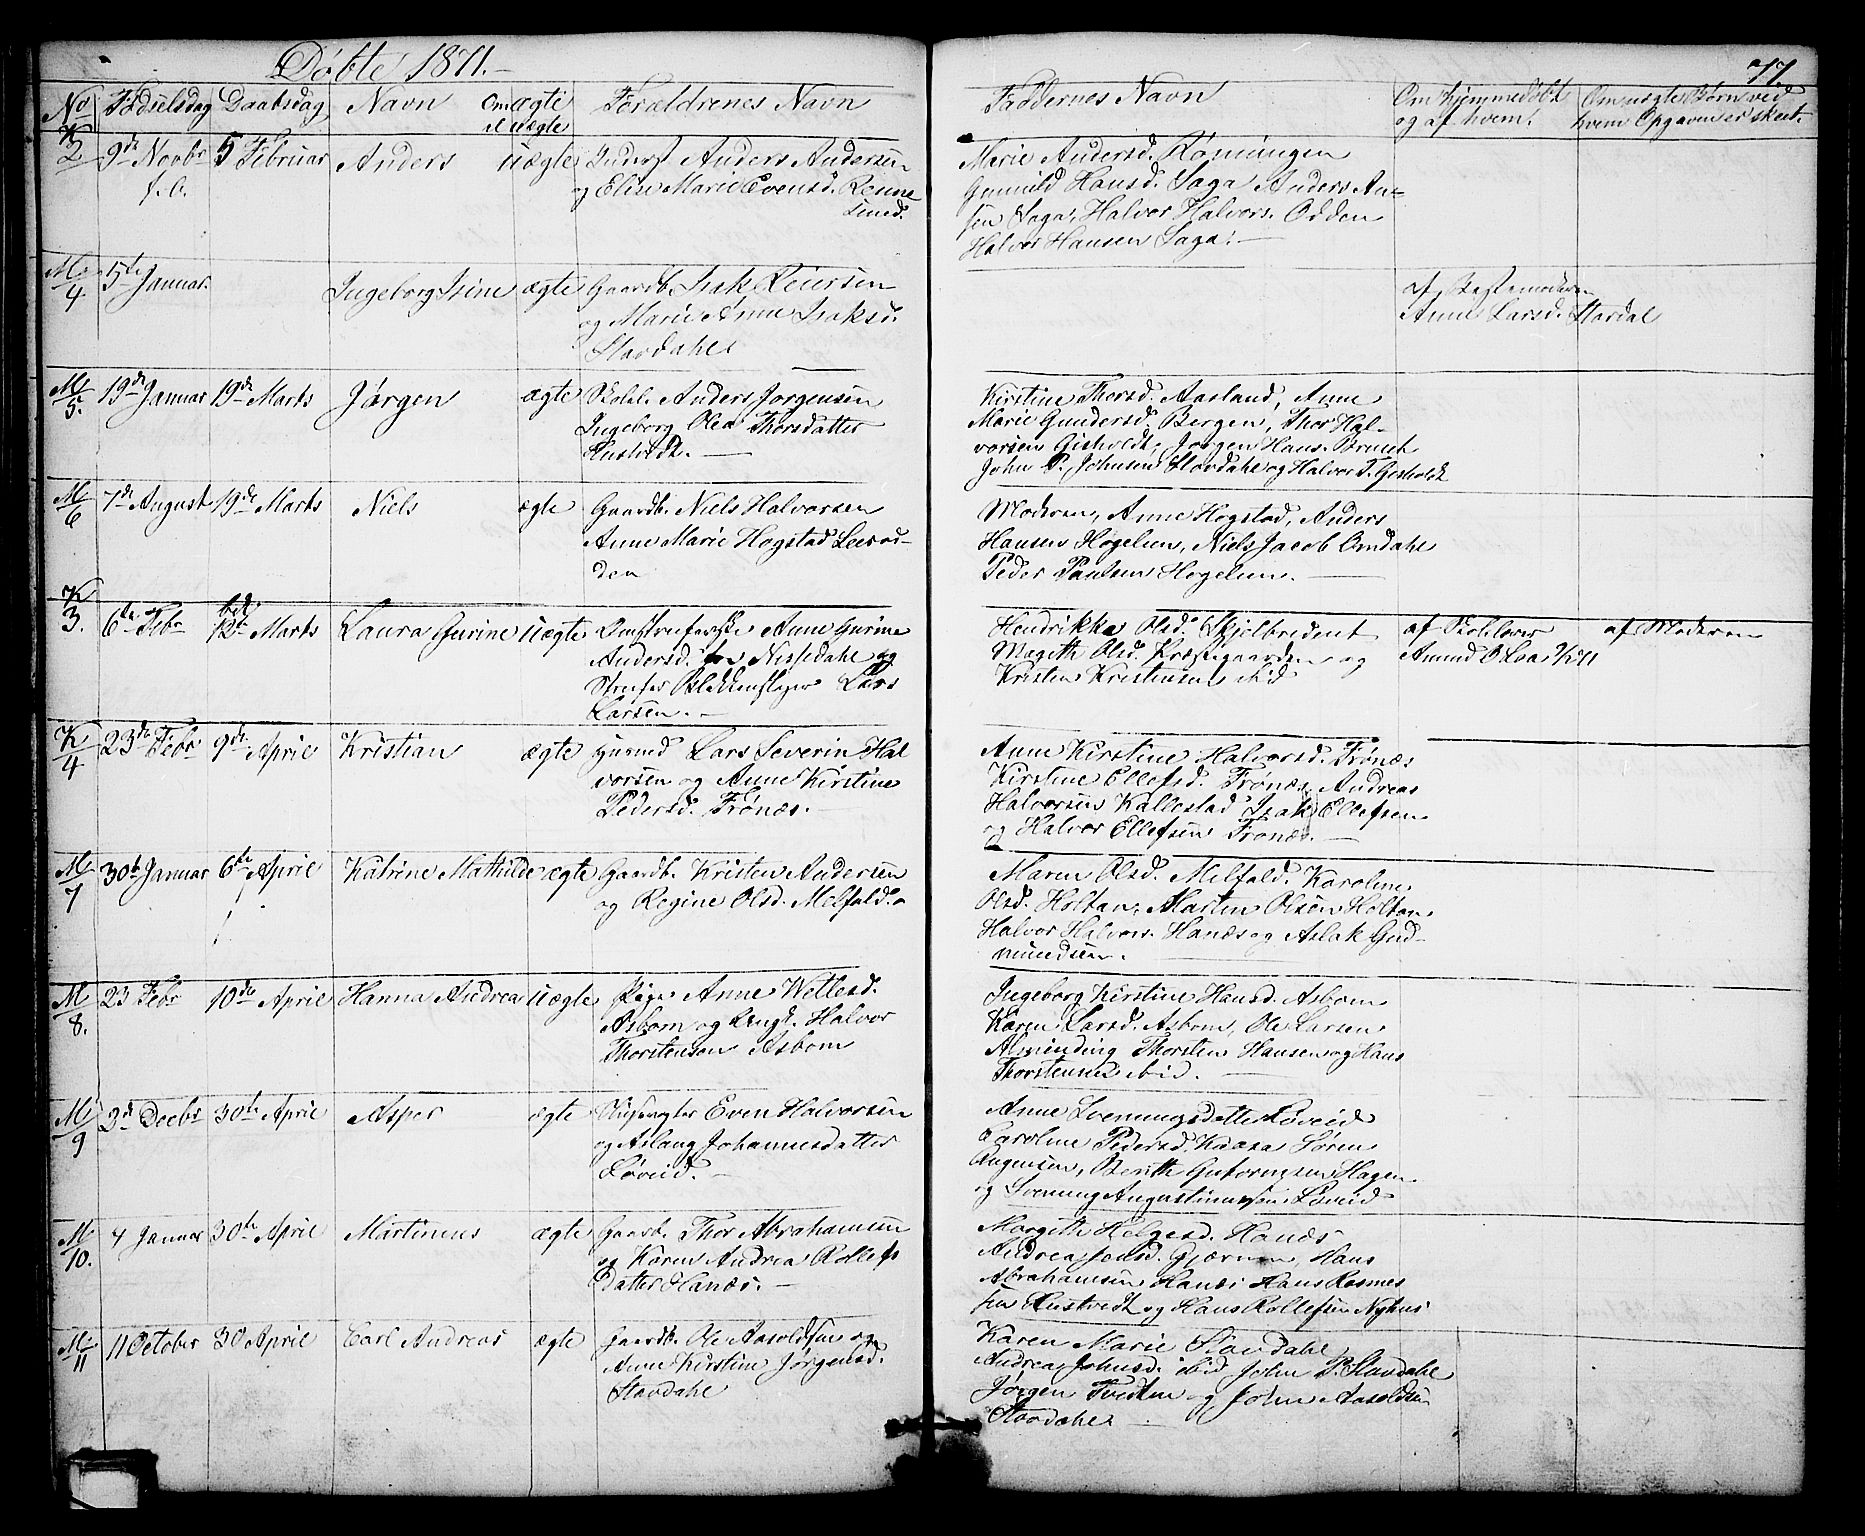 Døbte 1871.
77.
No Fødselsdag Daabsdag Navn Om ægte el. uægte Forældrenes Navn
Faddernes Navn Om hjemmedøbt og af hvem. Om uægte Børn ved hvem Opgaven er skeet.
K 2 9de Novbr f. A. 5 Februar Anders uægte Anders Andersen
og Elise Marie Evensd. Renne
smed.
Marie Andersd. Rømingen
Gunnild Hansd. Saga Anders An-
sen Saga, Halvor Halvors. Odden
Halvor Hansen Saga.
M 4 5te Januar. Ingeborg Isine ægte Gaardb. Isak Reiersen
og Marie Anne Isaksd.
Stavdahl
af Bestemoderen
Anne Larsd. Stavdal
M 5. 19de Januar 19de Marts Jørgen ægte Skolel. Anders Jørgensen
Ingeborg Olea Thorsdatter
Hustvedt.
Kirstine Thorsd. Aasland, Anne
Marie Gundersd. Bergen, Thor Hal-
vorsen Gisholdt, Jørgen Hans.
John P. Johnsen Stavdahl og Halvor T. Gisholdt
M 6 7de August 19de Marts Niels ægte Gaardb. Niels Halvorsen
Anne Marie Høgstad
den
Moderen, Anne Høgstad, Anders
Hansen Høgelien, Niels Jacob Omdahl
Peder Paulsen Høgelien.
K 3. 6te Febr 12te Marts Laura Gurine uægte Anne Gurine
Andersd. fra Nissedahl og
Streifer Blikkenslager Lars
Larsen.
Hendrikke Olsd. Skjelbredeat
Magith Olsd. Præstegaarden og
Kristen Kristensen ibid
af Skolelærer
Amund O. Laas
af Moderen
K 4 23de Febr 9de April Kristian ægte Husmd Lars Severin Hal
vorsen og Anne Kirstine
Pedersd. Frønæs.
Anne Kirstine Halvorsd. Frønæs
Kirstine Ellefsd. Frønæs, Andreas
Halvorsen Kallestad Isak Ellefsen
og Halvor Ellefsen Frønæs.
M 7 30te Januar 6te April Katrine Mathilde ægte Gaardb. Kristen Andersen
og Regine Olsd. Melfald.
Maren Olsd. Melfald. Karoline
Olsd. Holtan, Martin Olsen Holtan
Halvor Halvors. Hanæs og Aslak Gud-
mundsen.
M 8. 23 Febr 10de April Hanna Andrea uægte Pige Anne Wetlesd.
Asbom og Ungk. Halvor
Thorstensen Asbom
Ingeborg Kirstine Hansd. Asbom
Karen Larsd. Asbom, Ole Larsen
Almending Thorsten Hansen og Hans
Thorstensen ibid.
M 9 3de Decbr 30te April Asper ægte Even Halvorsen
og Aslaug Johannesdatter
Løveid.
Anne Sveningsdatter Løveid
Caroline Pedersd. Kaasa Søren
Hagen
og Svenung Løveid
M 10. 4 Januar 30te April Martinius ægte Gaardb. Thor Abrahamsen
og Karen Andrea Rollefs
Datter Hanæs.
Margith Helgesd. Hanæs
Andrea Jensd. Hans
Abrahamsen Hanæs Hans Rasmes
sen Hustvedt og Hans Rollefsen Nyhus
M 11 11 October 30 April Carl Andreas ægte Gaardb. Ole Aasoldsen og
Anne Kirstine Jørgensd.
Stavdahl
Karen Marie Stavdahl
Andrea Johnsd. ibid John P. Stavdahl
Jørgen Tveitan og John Aasoldsen
Stavdahl